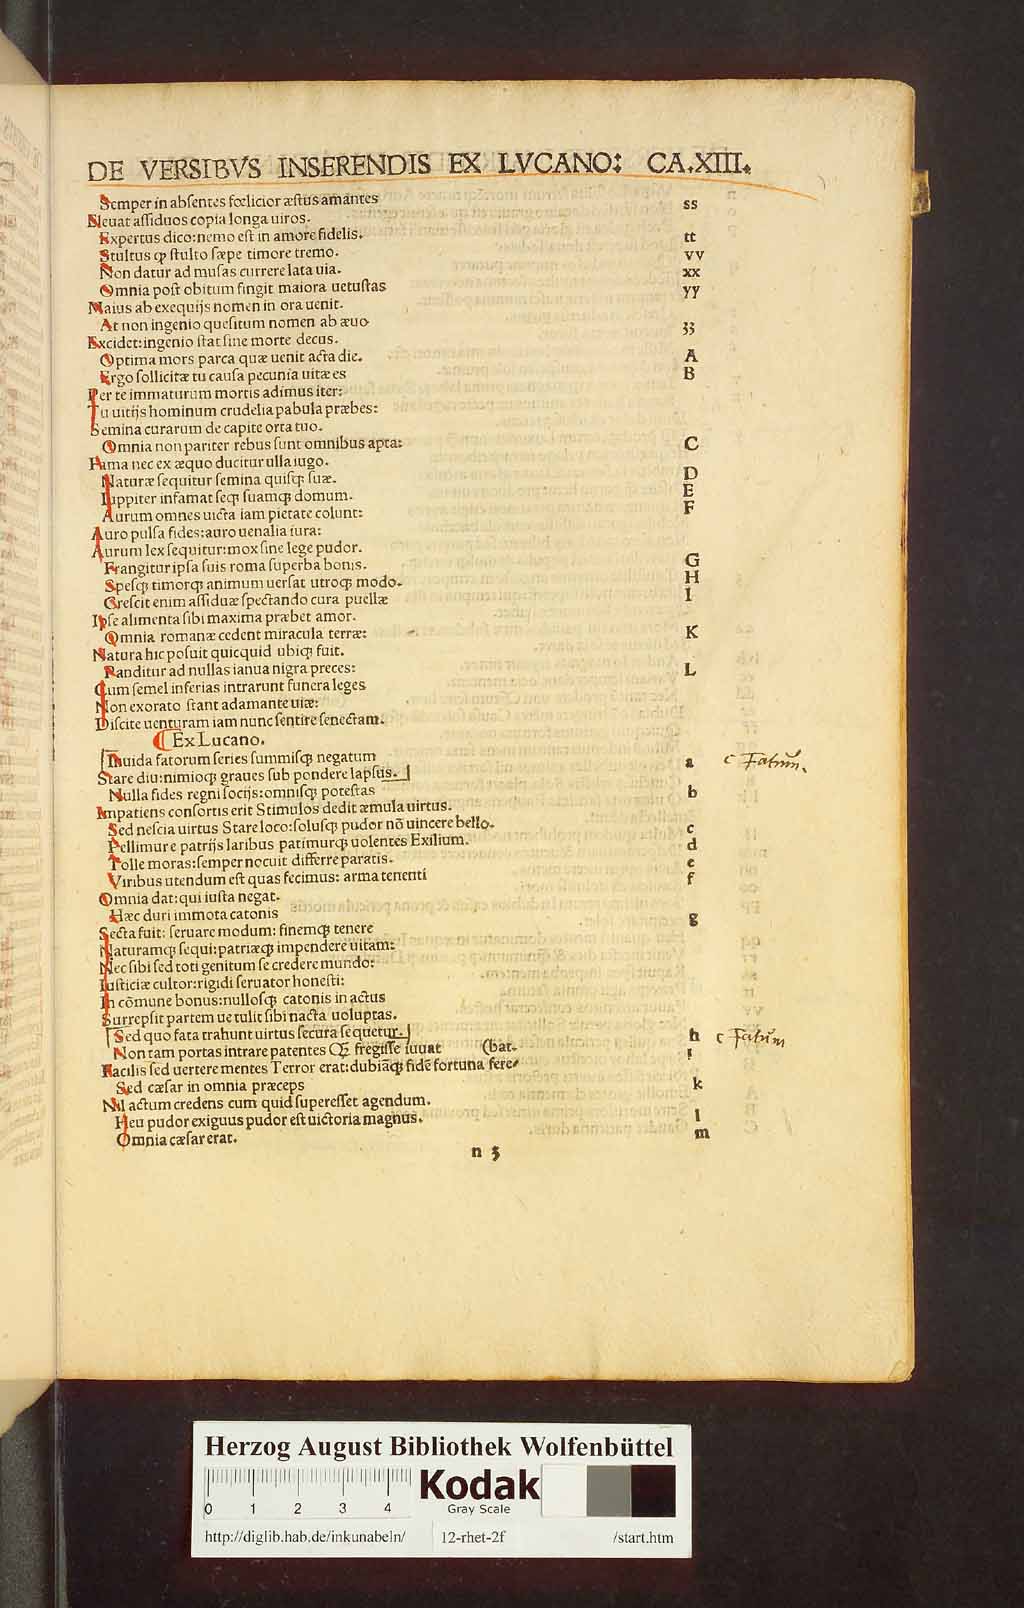 DE VERSIBVS INSERENDIS EX LVCANO: CA.XIII.
Semper in absentes fœlicior æstus amantes ss
Eleuat assiduos copia longa uiros.
Expertus dico:nemo est in amore fidelis. tt
Stultus ꝙ stulto sæpe timore tremo. vv
Non datur ad musas currere lata uia. xx
Omnia post obitum fingit maiora uetustas yy
Maius ab exequijs nomen in ora uenit.
At non ingenio quesitum nomen ab æuo zz
Excidet:ingenio stat sine morte decus.
Optima mors parca quæ uenit acta die. A
Ergo sollicitæ tu causa pecunia uitæ es B
Per te immaturum mortis adimus iter:
Tu uitijs hominum crudelia pabula præbes:
Semina curarum de capite orta tuo.
Omnia non pariter rebus sunt omnibus apta: C
Fama nec ex æquo ducitur ulla iugo.
Naturæ sequitur semina quisqꝫ suæ. D
Iuppiter infamat seqꝫ suamqꝫ domum. E
Aurum omnes uicta iam pietate colunt: F
Auro pulsa fides:auro uenalia iura:
Aurum lex sequitur:mox sine lege pudor.
Frangitur ipsa suis roma superba bonis. G
Spesqꝫ timorqꝫ animum uersat utroqꝫ modo. H
Crescit enim assiduæ spectando cura puellæ I
Ipse alimenta sibi maxima præbet amor.
Omnia romanæ cedent miracula terræ: K
Natura hic posuit quicquid ubiqꝫ fuit.
Panditur ad nullas ianua nigra preces: L
Cum semel inferias intrarunt funera leges
Non exorato stant adamante uiæ:
Discite uenturam iam nunc sentire senectam.
Ex Lucano.
Inuida fatorum series summisqꝫ negatum a c Fatum.
Stare diu:nimioqꝫ graues sub pondere lapsus.
Nulla fides regni socijs:omnisqꝫ potestas b
Impatiens consortis erit Stimulos dedit æmula uirtus.
Sed nescia uirtus Stare loco:solusqꝫ pudor nō uincere bello. c
Pellimur e patrijs laribus patimurqꝫ uolentes Exilium. d
Tolle moras:semper nocuit differre paratis. e
Viribus utendum est quas fecimus: arma tenenti f
Omnia dat:qui iusta negat.
Hæc duri immota catonis g
Secta fuit: seruare modum: finemqꝫ tenere
Naturamqꝫ sequi:patriæqꝫ impendere uitam:
Nec sibi sed toti genitum se credere mundo:
Iusticiæ cultor:rigidi seruator honesti:
In cōmune bonus:nullosqꝫ catonis in actus
Surrepsit partem ue tulit sibi nacta uoluptas.
Sed quo fata trahunt uirtus secura sequetur. h c Fatum
Non tam portas intrare patentes Qꝫ fregisse iuuat (bat. i
Facilis sed uertere mentes Terror erat:dubiāqꝫ fidē fortuna fere
Sed cæsar in omnia præceps k
Nil actum credens cum quid superesset agendum.
Heu pudor exiguus pudor est uictoria magnus. l
Omnia cæsar erat. m
n 3
Herzog August Bibliothek Wolfenbüttel
0 1 2 3 4
Kodak
Gray Scale
http://diglib.hab.de/inkunabeln/ 12-rhet-2f /start.htm